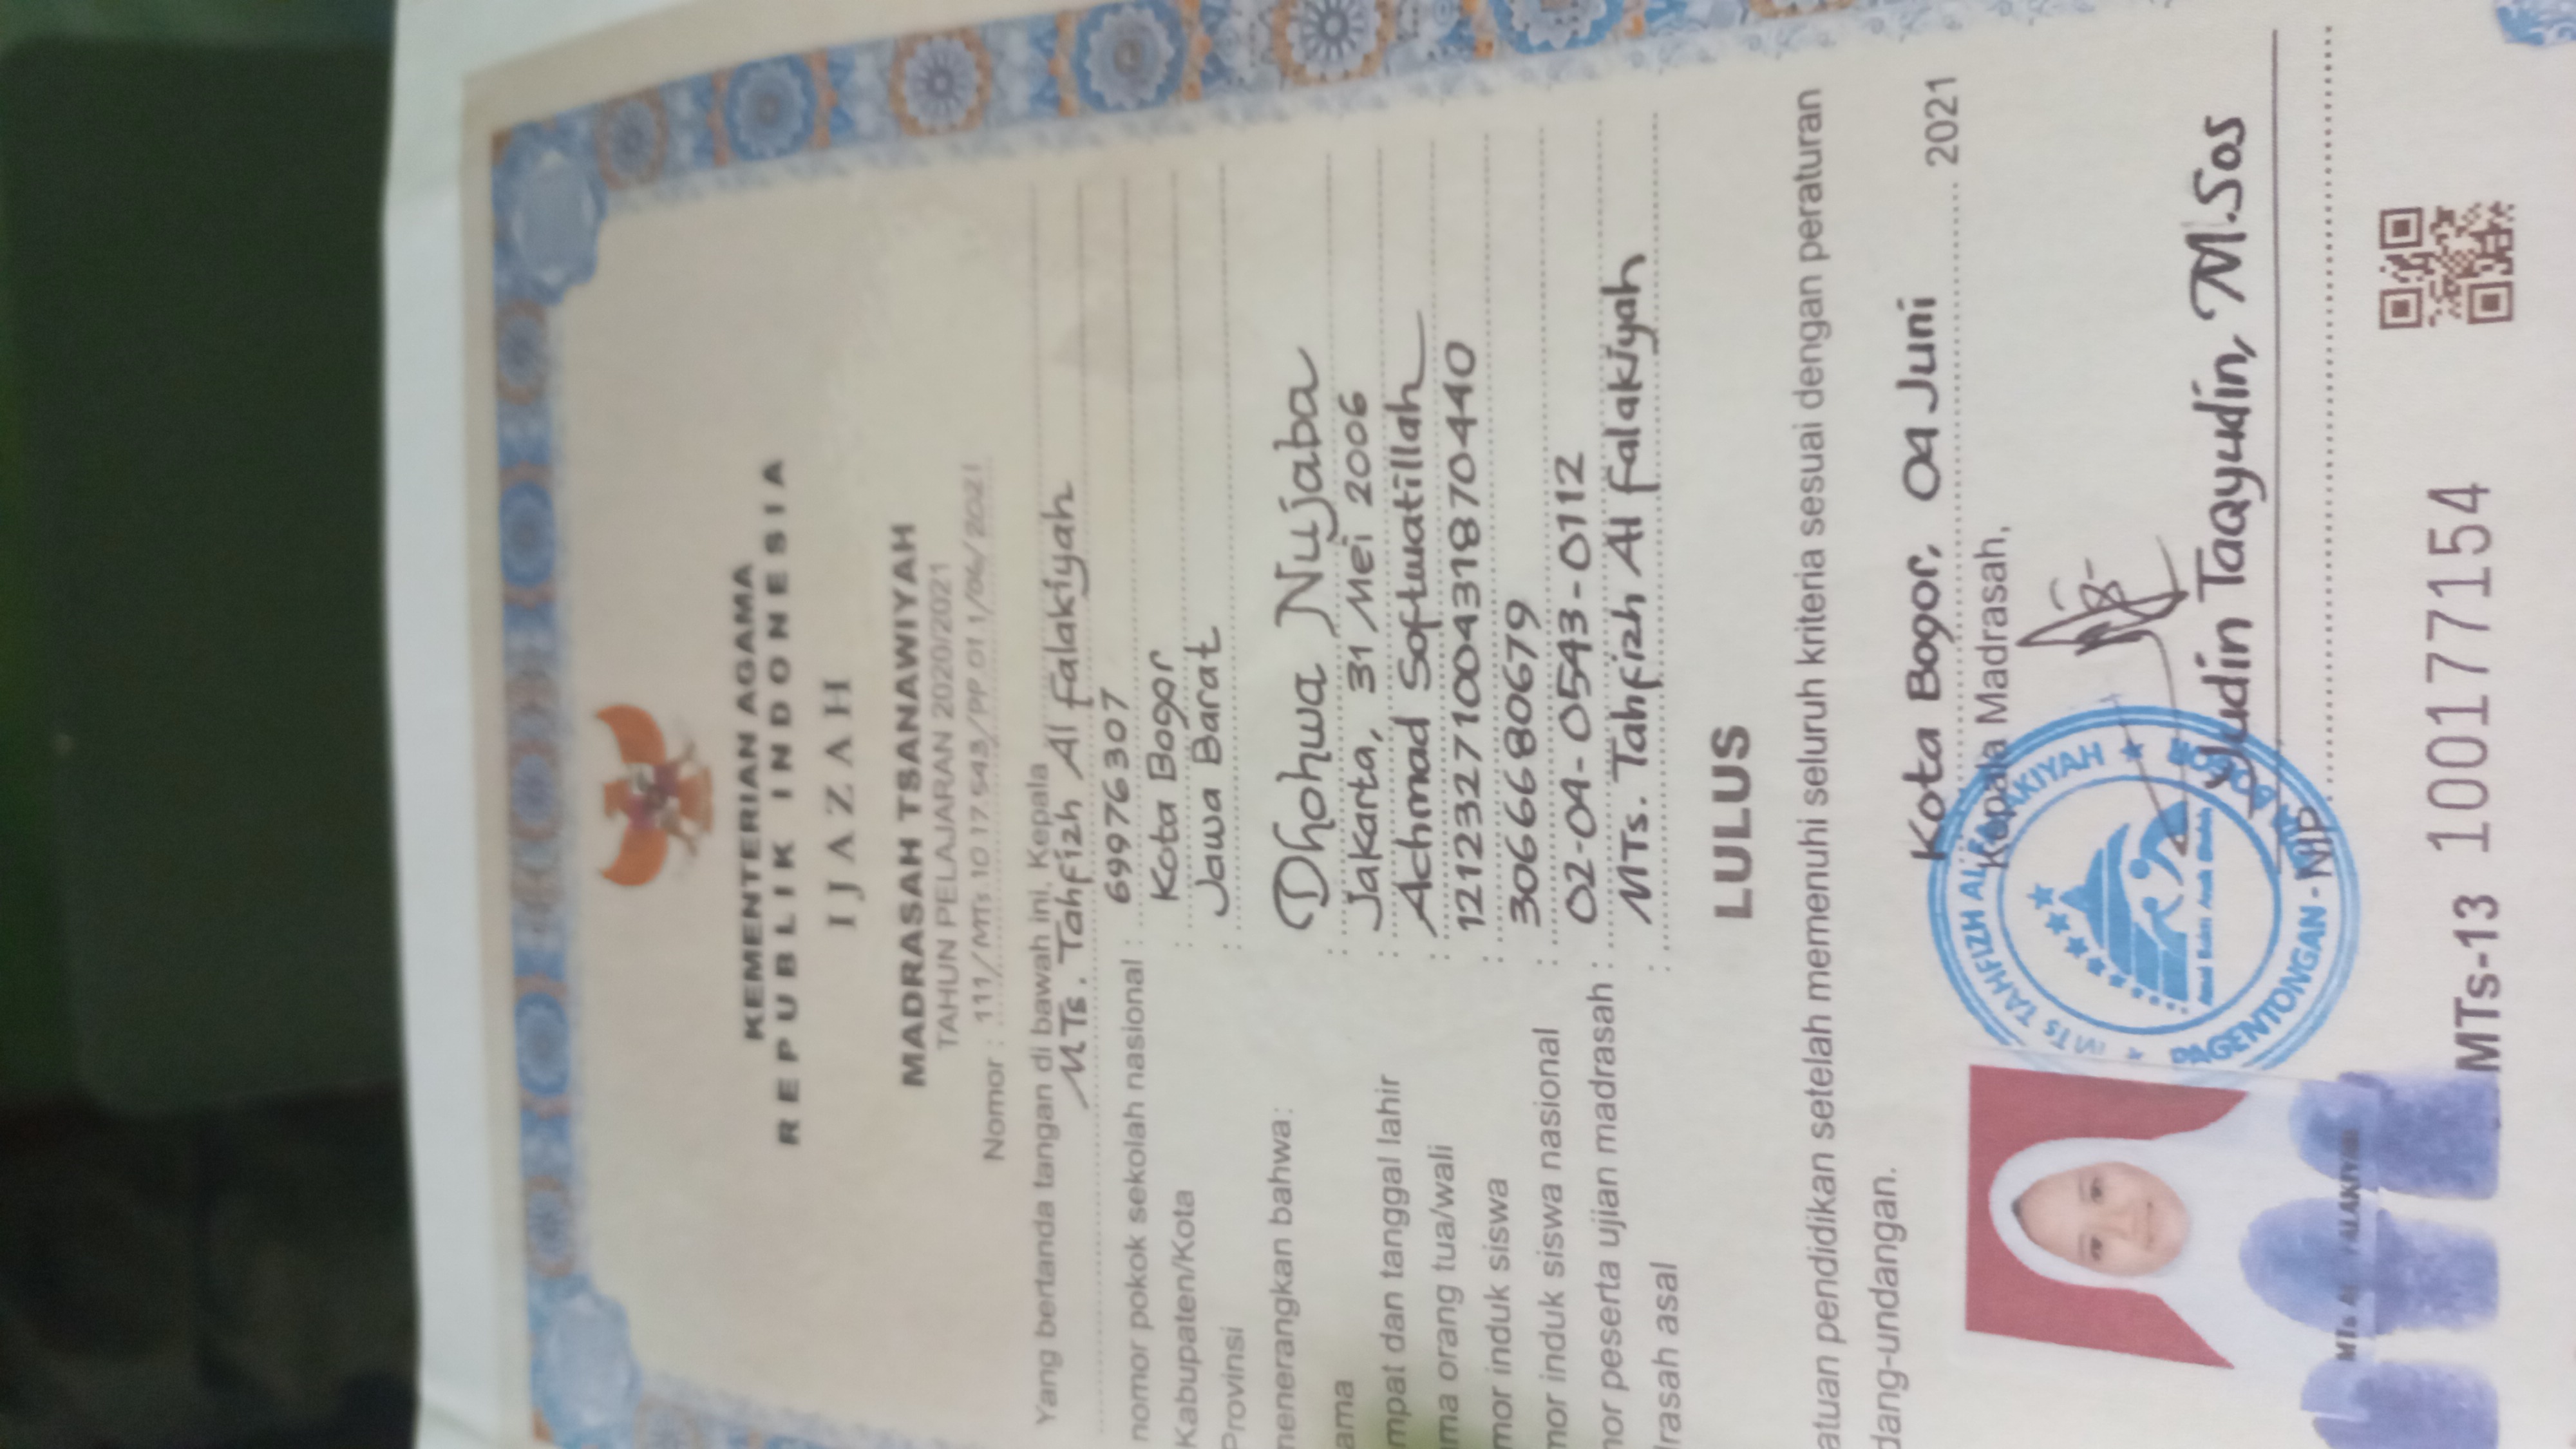 KEMENTERIAN AGAMA
REPUBLIK INDONESIA
IJAZAH
MADRASAH TSANAWIYAH
TAHUN PELAJARAN 2020/2021
Nomor : 111/MTs.10.17.543/PP.01.1/06/2021
Yang bertanda tangan di bawah ini, Kepala
MTs. Tahfizh Al Falakiyah
nomor pokok sekolah nasional : 69976307
Kabupaten/Kota : Kota Bogor
Provinsi : Jawa Barat
menerangkan bahwa:
ama : Dhohwa Nujaba
mpat dan tanggal lahir : Jakarta, 31 Mei 2006
ma orang tua/wali : Achmad Softwatillah
mor induk siswa : 1212327100431870440
mor induk siswa nasional : 3066680679
mor peserta ujian madrasah : 02-04-0543-0112
drasah asal : MTs. Tahfizh Al Falakiyah
LULUS
atuan pendidikan setelah memenuhi seluruh kriteria sesuai dengan peraturan
dang-undangan.
Kota Bogor, 04 Juni 2021
Kepala Madrasah,
MTs TAHFIZH AL FALAKIYAH
PAGENTONGAN - KOTA BOGOR
Yudin Taqyudin, M.Sos
NIP.
MTs AL FALAKIYAH
MTs-13 100177154